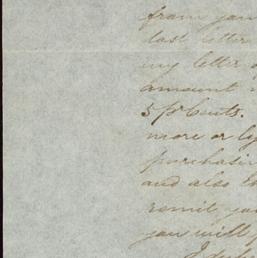 from you
last letter
my letter
amount
5 pr Cents.
more or
purchasin
and also
remit you
you will